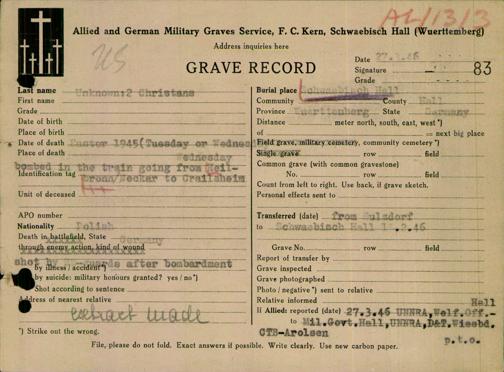 AL/13/3
Allied and German Military Graves Service, F. C. Kern, Schwaebisch Hall (Wuerttemberg)
Address inquiries here
US
GRAVE RECORD
Date 27.3.46
Signature
83
Grade
Last name Unknown: 2 Christans
First name
Grade
Date of birth
Place of birth
Date of death Easter 1945 (Tuesday or Wednesd
Place of death Wednesday
bombed in the train going from Heil-
Identification tag bronn/Neckar to Crailsheim
Unit of deceased
APO number
Nationality Polish
Death in battlefield, State Germany
through enemy action, kind of wound
shot by guards after bombardment
by illness / accident*)
by suicide: military honours granted? yes / no*)
Shot according to sentence
Address of nearest relative
extract made
*) Strike out the wrong.
Burial place Schwaebisch Hall
Community County Hall
Province Wuerttemberg State Germany
Distance meter north, south, east, west*)
of = next big place
Field grave, military cemetery, community cemetery*)
Single grave row field
Common grave (with common gravestone)
No. row field
Count from left to right. Use back, if grave sketch.
Personal effects sent to
Transferred (date) from Sulzdorf
to Schwaebisch Hall 1 .2.46
Grave No. row field
Report of transfer by
Grave inspected
Grave photographed
Photo / negative*) sent to relative
Relative informed Hall
If Allied: reported (date) 27.3.46 UNRRA, Welf. Off.-
to Mil.Govt.Hall, UNRRA, D&T. Wiesbd.
CTB-Arolsen
p.t.o.
File, please do not fold. Exact answers if possible. Write clearly. Use new carbon paper.